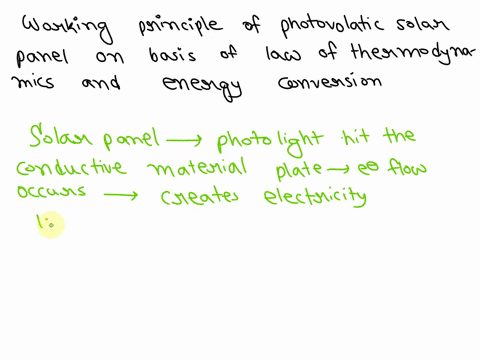 Working principle of photovolatic solar
panel on basis of law of thermodyna-
mics and energy conversion
Solar panel → photolight hit the
conductive material plate → e⊖ flow
occurs → creates electricity